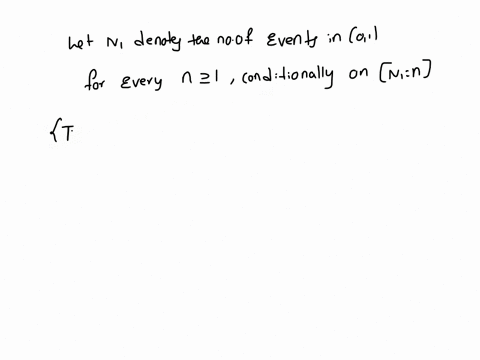 Let N₁ denoty the no.of Events in (0,1)
for Every n ≥ 1 , conditionally on [N₁=n]
{T